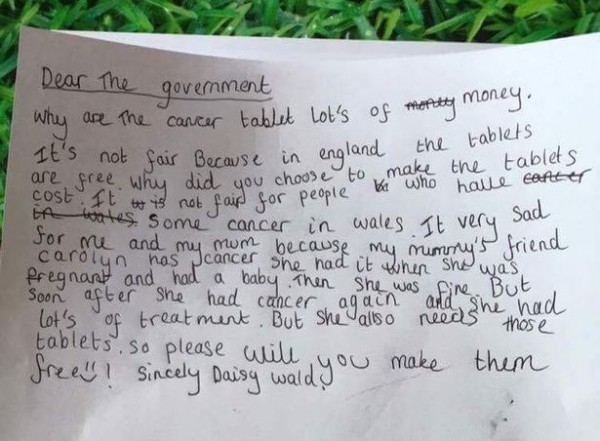 Dear The government
why are the cancer tablet lot's of money money.
It's not fair Because in england the tablets
are free. why did you choose to make the tablets
cost. It is not fair for people who have cancer
in wales. Some cancer in wales. It very sad
for me and my mum because my mummy's friend
carolyn has cancer she had it when she was
pregnant and had a baby. Then she was fine. But
soon after she had cancer again and she had
lot's of treatment. But she also needs those
tablets. so please will you make them
free! Sincely Daisy wald